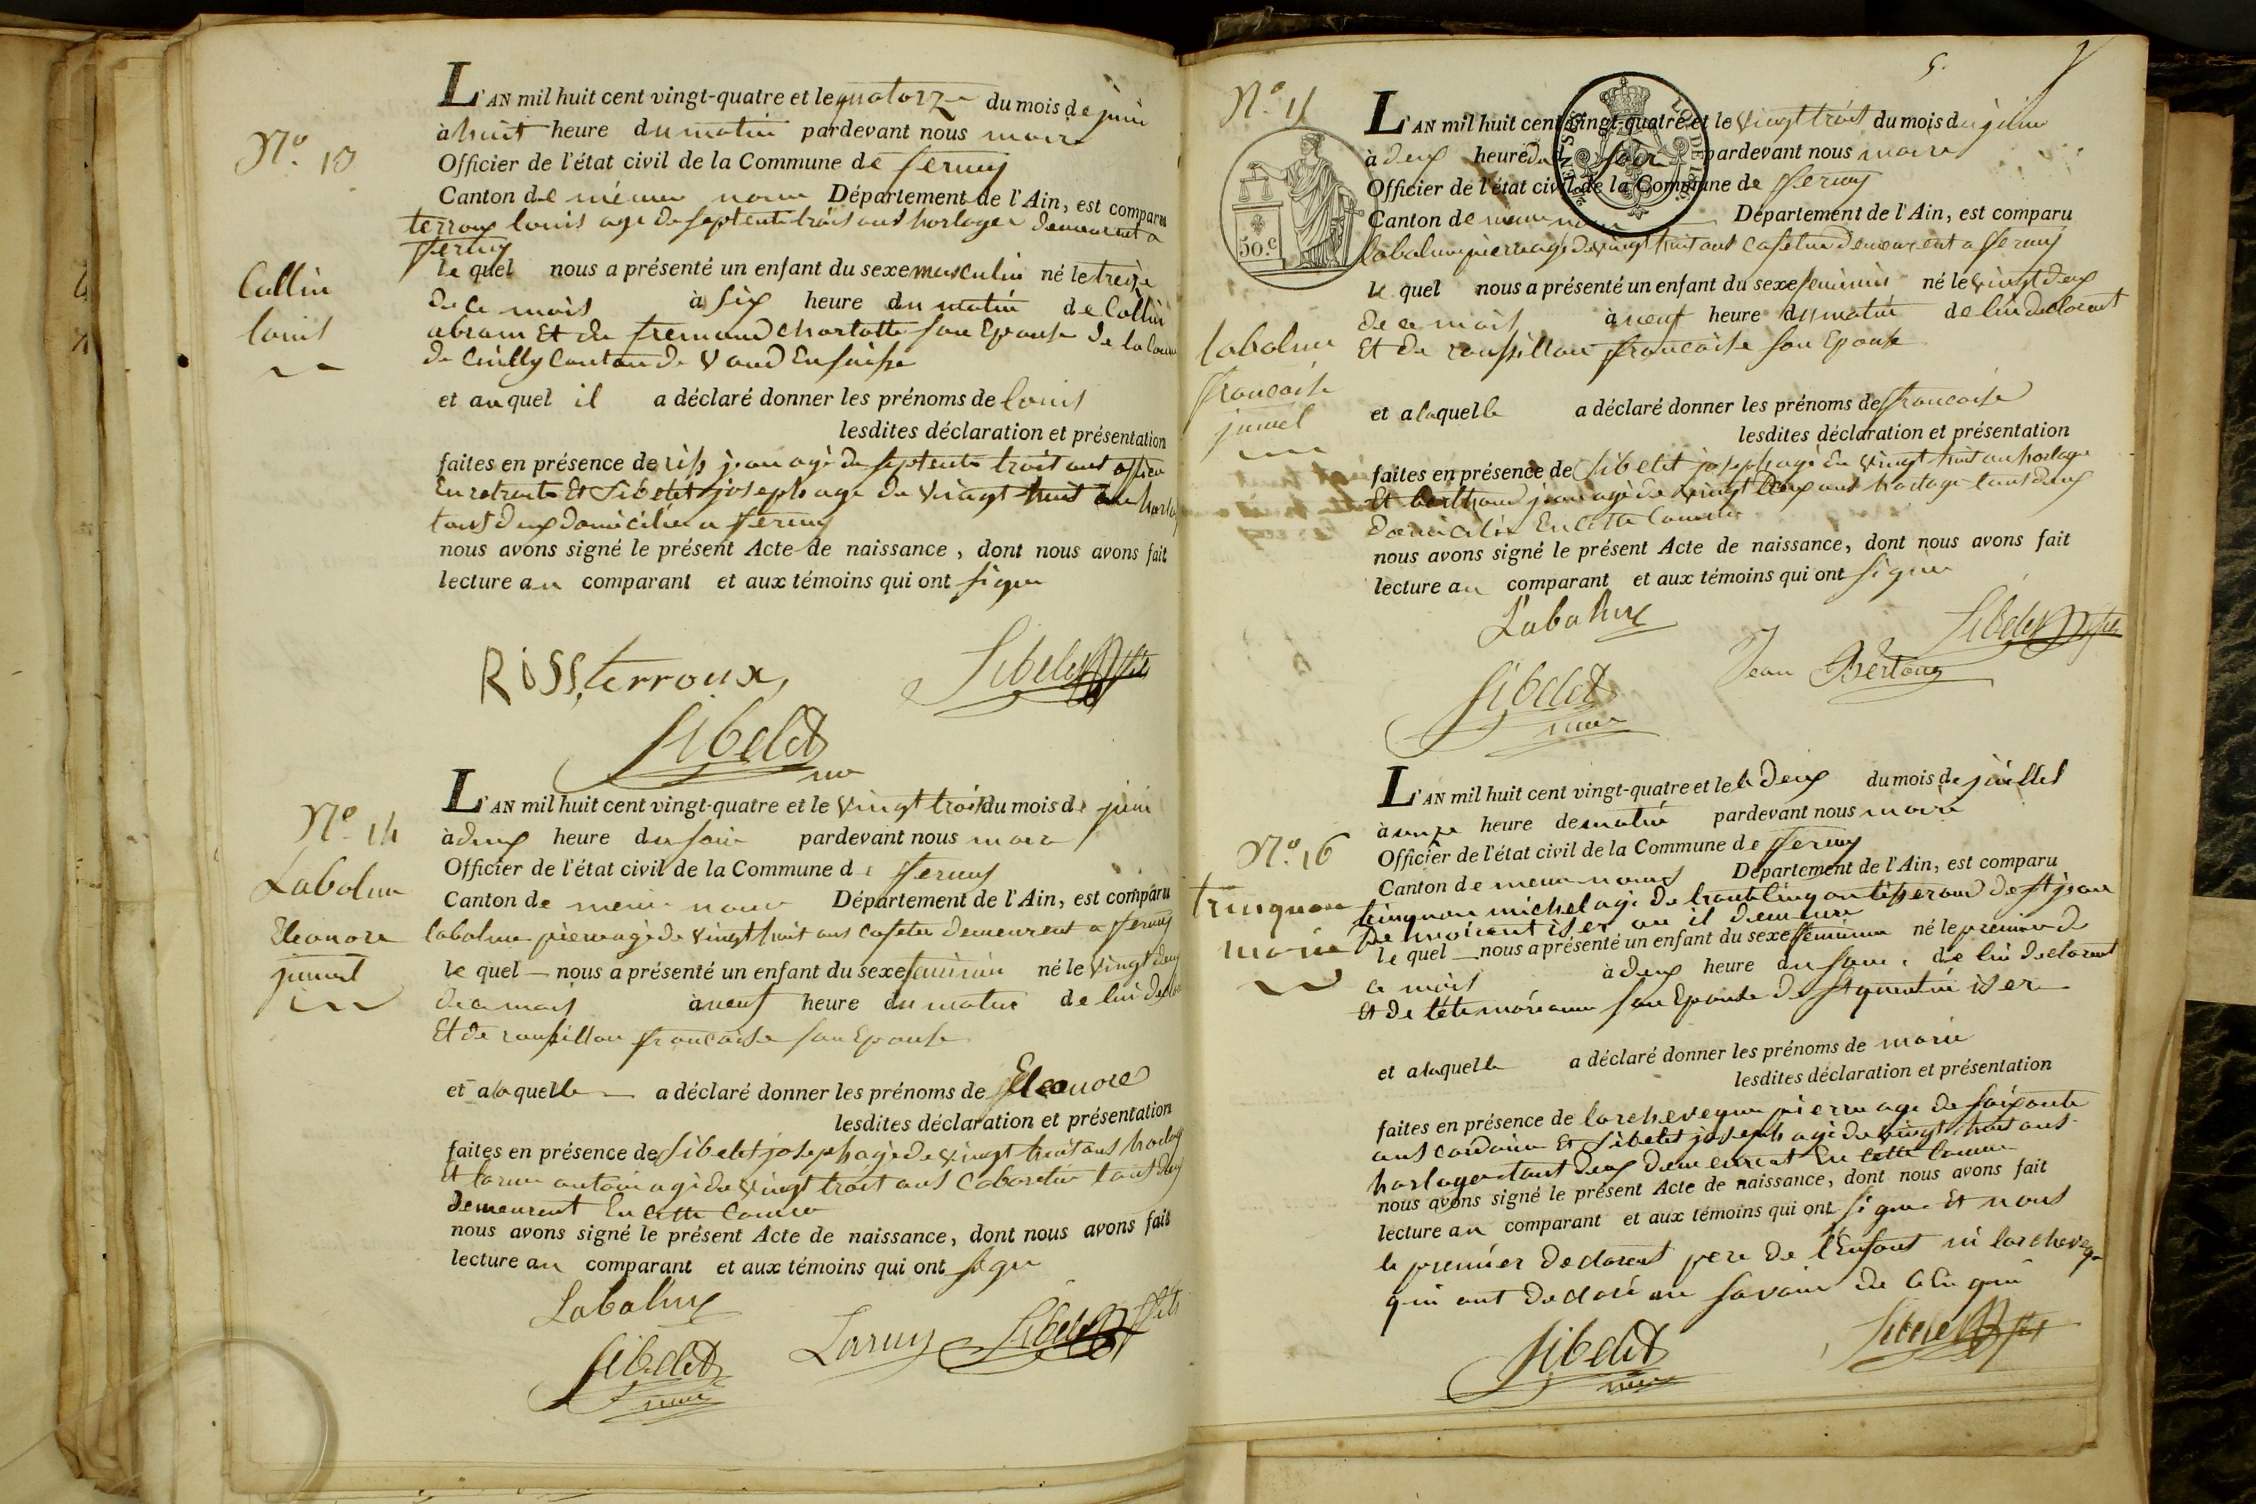 L'AN mil huit cent vingt-quatre et le quatorze du mois de juin
N.o 13
à huit heure du matin pardevant nous maire
Officier de l'état civil de la Commune de ferney
Canton de même nom Département de l'Ain, est comparu
terroux louis agé de septente trois ans horloger demeurent a
ferney
Collin
louis
le quel nous a présenté un enfant du sexe masculin né le treize
de ce mois à six heure du matin de Collin
abram Et de fremand charlotte son Epouse de la
de Cuilly Canton de Vaud En suisse
et auquel il a déclaré donner les prénoms de louis
lesdites déclaration et présentation
faites en présence de riss jean agé de septente trois ans
En retraite Et Sibelet joseph age de vingt huit ans
tous deux domicilies a ferney
nous avons signé le présent Acte de naissance, dont nous avons fait
lecture au comparant et aux témoins qui ont signe
Riss, terroux, Sibelet fils
Sibelet
L'AN mil huit cent vingt-quatre et le vingt trois du mois de juin
N.o 14
à deux heure du soir pardevant nous maire
Officier de l'état civil de la Commune de ferney
Labolme
Eleonore
jumel
Canton de meme nom Département de l'Ain, est comparu
labolme pierre agé de vingt huit ans cafetie demeurent a ferney
le quel nous a présenté un enfant du sexe feminin né le vingt deux
de ce mois à neuf heure du matin de lui
Et de roussillon francoise son Epouse
et a laquelle a déclaré donner les prénoms de Eleonore
lesdites déclaration et présentation
faites en présence de Sibelet joseph agé de vingt huit ans
Et larue antoine agé de vingt trois ans Cabaretie tous deux
demeurent En cette Comune
nous avons signé le présent Acte de naissance, dont nous avons fait
lecture au comparant et aux témoins qui ont signe
Labolme
Larue Sibelet fils
Sibelet
maire
5.
N.o 15
L'AN mil huit cent vingt-quatre et le vingt trois du mois de juin
à deux heure du soir pardevant nous maire
Officier de l'état civil de la Commune de ferney
Canton de meme nom Département de l'Ain, est comparu
50.c
labolme pierre agé de vingt huit ans cafetie demeurent a ferney
le quel nous a présenté un enfant du sexe feminin né le vingt deux
de ce mois à neuf heure du matin de lui declarent
Et de roussillon francoise son Epouse
labolme
francoise
jumel
et a laquelle a déclaré donner les prénoms de francoise
lesdites déclaration et présentation
faites en présence de Sibelet joseph agé de vingt huit ans horloger
Et berthoud jean agé de vingt deux ans horloger tous deux
domicilies En cette Comune
nous avons signé le présent Acte de naissance, dont nous avons fait
lecture au comparant et aux témoins qui ont signe
Labolme
Sibelet fils
Jean
Sibelet
maire
L'AN mil huit cent vingt-quatre et le le deux du mois de juillet
à onze heure de matin pardevant nous maire
N.o 16
Officier de l'état civil de la Commune de ferney
Canton de meme nom Département de l'Ain, est comparu
trinquon
marie
trinquon michel agé de trente cinq ans tisserand de St jean
de moirant iser ou il demeure
le quel nous a présenté un enfant du sexe feminin né le premier de
ce mois à deux heure du soir, de lui declarent
Et de tete marianne son Epouse de St quentin iser
et a laquelle a déclaré donner les prénoms de marie
lesdites déclaration et présentation
faites en présence de larcheveque pierre age de soixante
ans cordonie Et Sibelet joseph agé de vingt huit ans
horloger tous deux demeurent En cette Comune
nous avons signé le présent Acte de naissance, dont nous avons fait
lecture au comparant et aux témoins qui ont signe Et nous
le premier declarent pere de l'Enfant ni larcheveque
qui ont declaré ne savoir de ce
Sibelet
maire
Sibelet fils